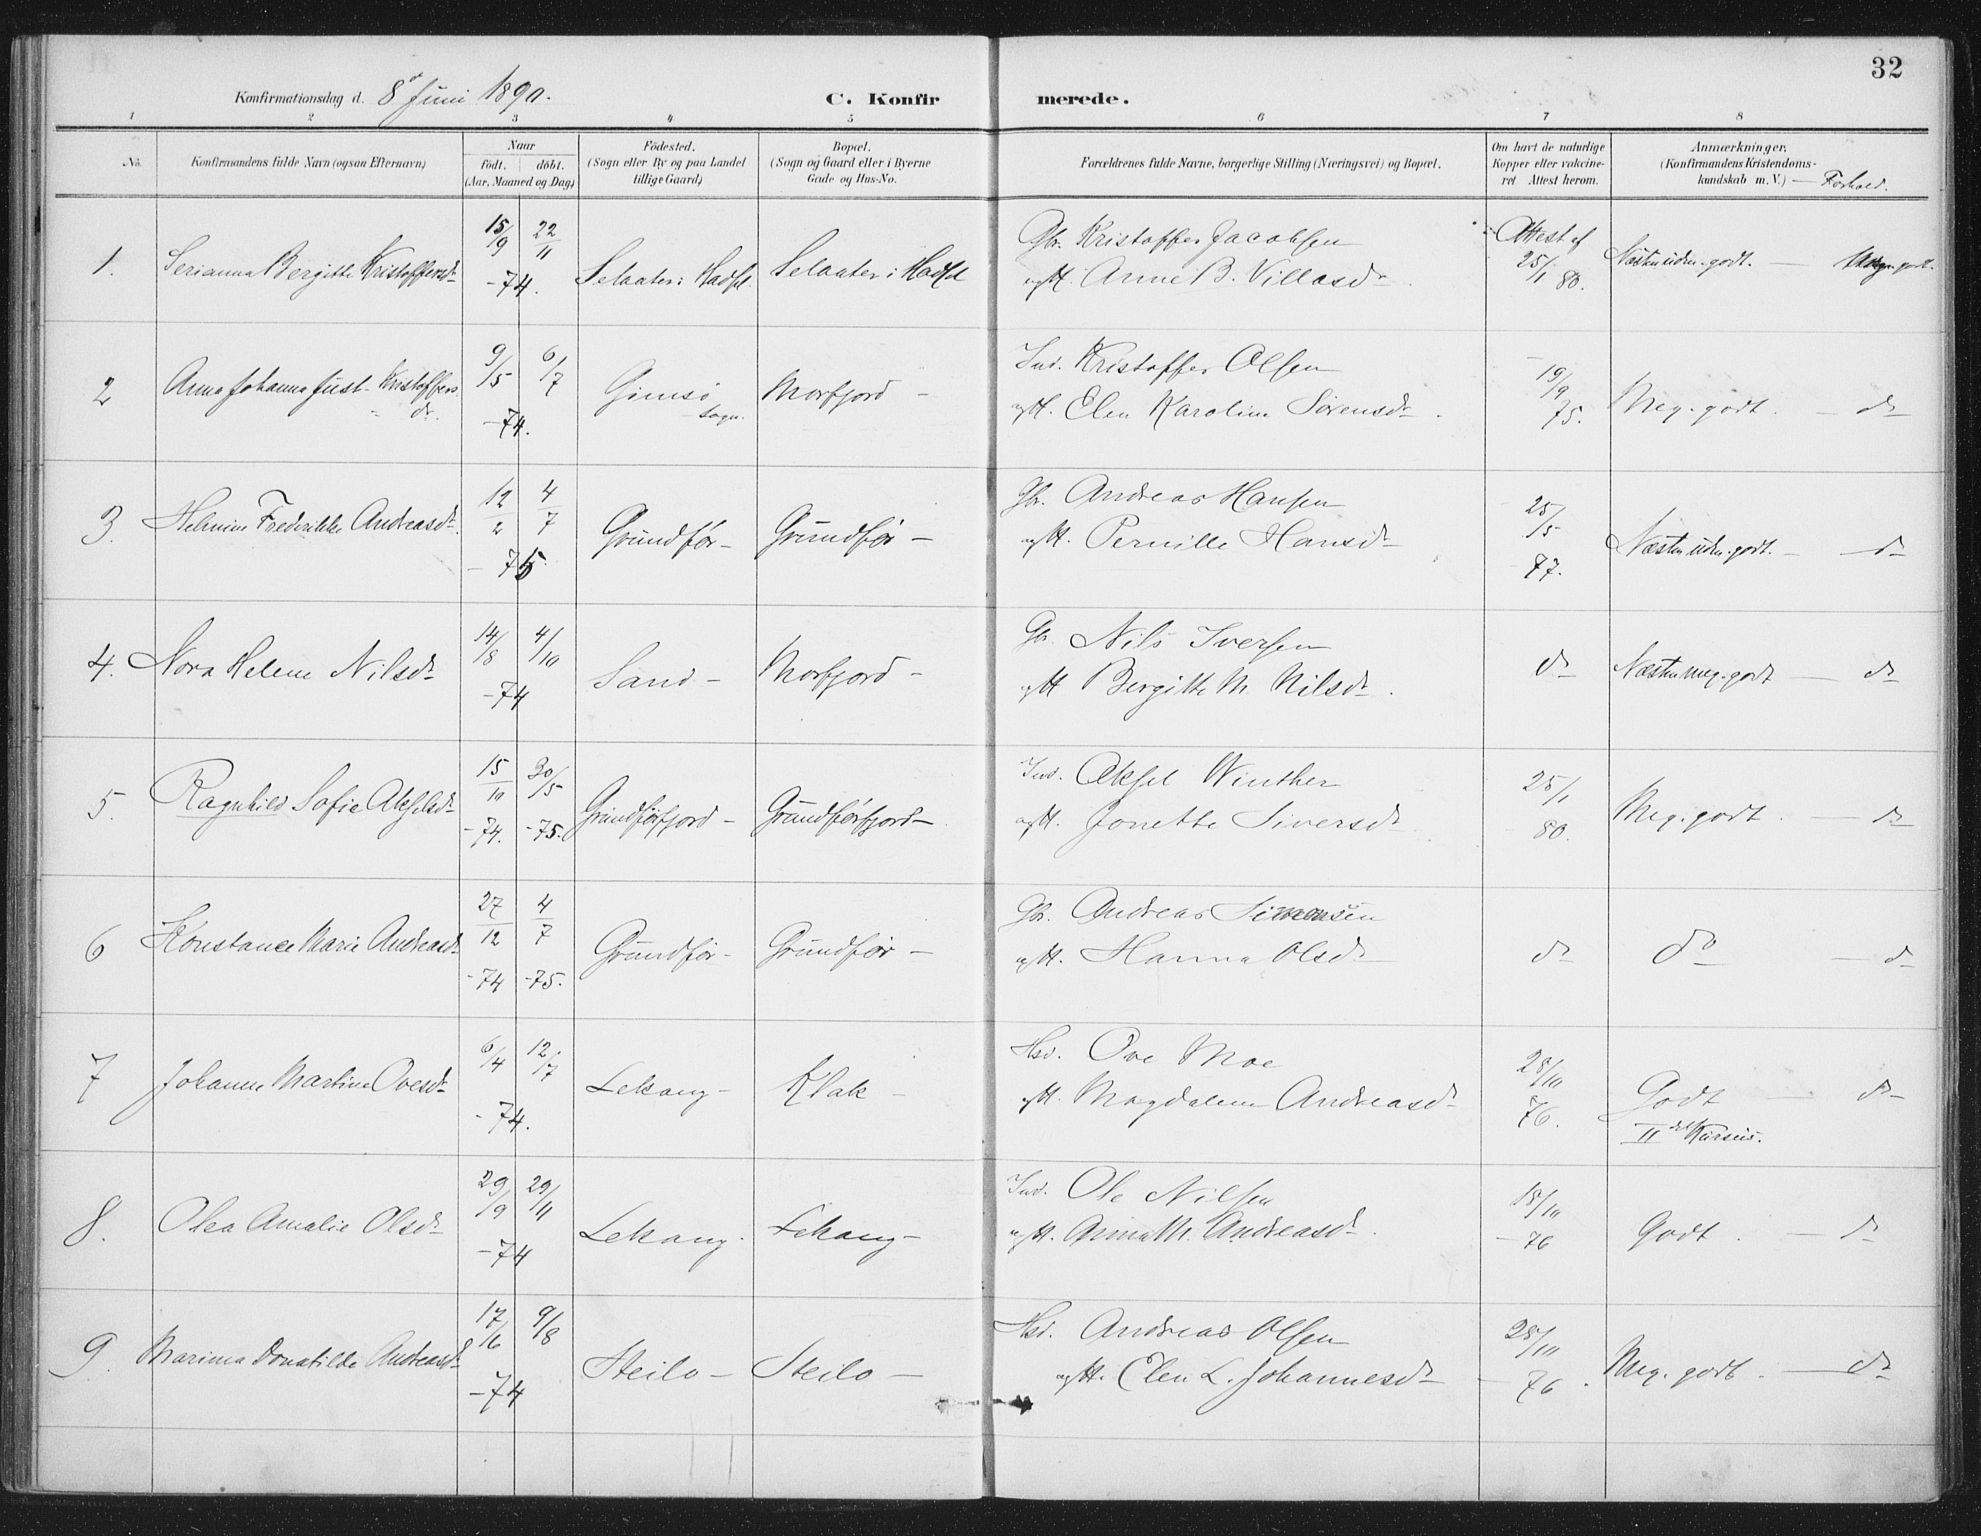 32
Konfirmationsdag d. 8de Juni 1890. C. Konfirmerede.
1 2 3 4 5 6 7 8
No. Konfirmandens fulde Navn (ogsaa Efternavn) Naar født. døbt. (Aar, Maaned og Dag) Fødested. (Sogn eller By og paa Landet tillige Gaard) Bopæl. (Sogn og Gaard eller i Byerne Gade og Hus-No. Forældrenes fulde Navne, borgerlige Stilling (Næringsvei) og Bopæl. Om havt de naturlige Kopper eller vakcineret Attest herom. Anmærkninger. (Konfirmandens Kristendomskundskab m. V.) — Forhold.
1. Serianna Bergitte Kristoffersdr 15/9 22/11 -74. Selaater i Hadsel Selaater i Hadsel Gbr. Kristoffer Jacobsen
og H. Anne B. Villasdr Attest af 25/1 80. Næsten udm. godt. — Meg. godt.
2 Anna Johanna Just. Kristoffersdr. 9/5 6/7 -74. Gimsø Sogn. Morfjord — Ind. Kristoffer Olsen
og H. Elen Karoline Sørensdr. 19/9 75. Meg. godt. — do
3. Helmine Frederikke Andreasdr. 12/2 4/7 -75 Grundfør — Grundfør — Gbr. Andreas Hansen
og H. Pernille Hansdr 25/5 77. Næsten udm. godt. — do
4. Nora Helene Nilsdr 14/8 4/10 -74 Sand — Morfjord — Gbr. Nils Iversen
og H. Bergitte M. Nilsdr. do Næsten meg. godt — do
5. Ragnhild Sofie Akselsdr 15/11 -74. 30/5 -75. Grundførfjord — Grundførfjord — Ind. Aksel Winther
og H. Jonette Siversdr 25/1 80. Meg. godt. — do
6 Konstance Marie Andreasdr. 27/12 -74 4/7 -75. Grundfør — Grundfør — Gbr. Andreas Simonsen
og H. Hanna Olsdr do do — do
7 Johanne Martine Ovesdr 6/4 12/7 -74. Lekang — Klak — Hsd. Ove Moe
og H. Magdalene Andreasdr 28/10 76. Godt — do
II det Kursus.
8. Olea Amalie Olsdr 29/9 29/11 -74 Lekang. Lekang — Ind. Ole Nilsen
og H. Anna M. Andreasdr. 18/10 76 Godt. — do
9. Marima Donatilde Andreasdr 17/6 9/8 -74 Steilo — Steilo — Hsd. Andreas Olsen
og H. Elen L. Johannesdr 28/10 76. Meg. godt. — do